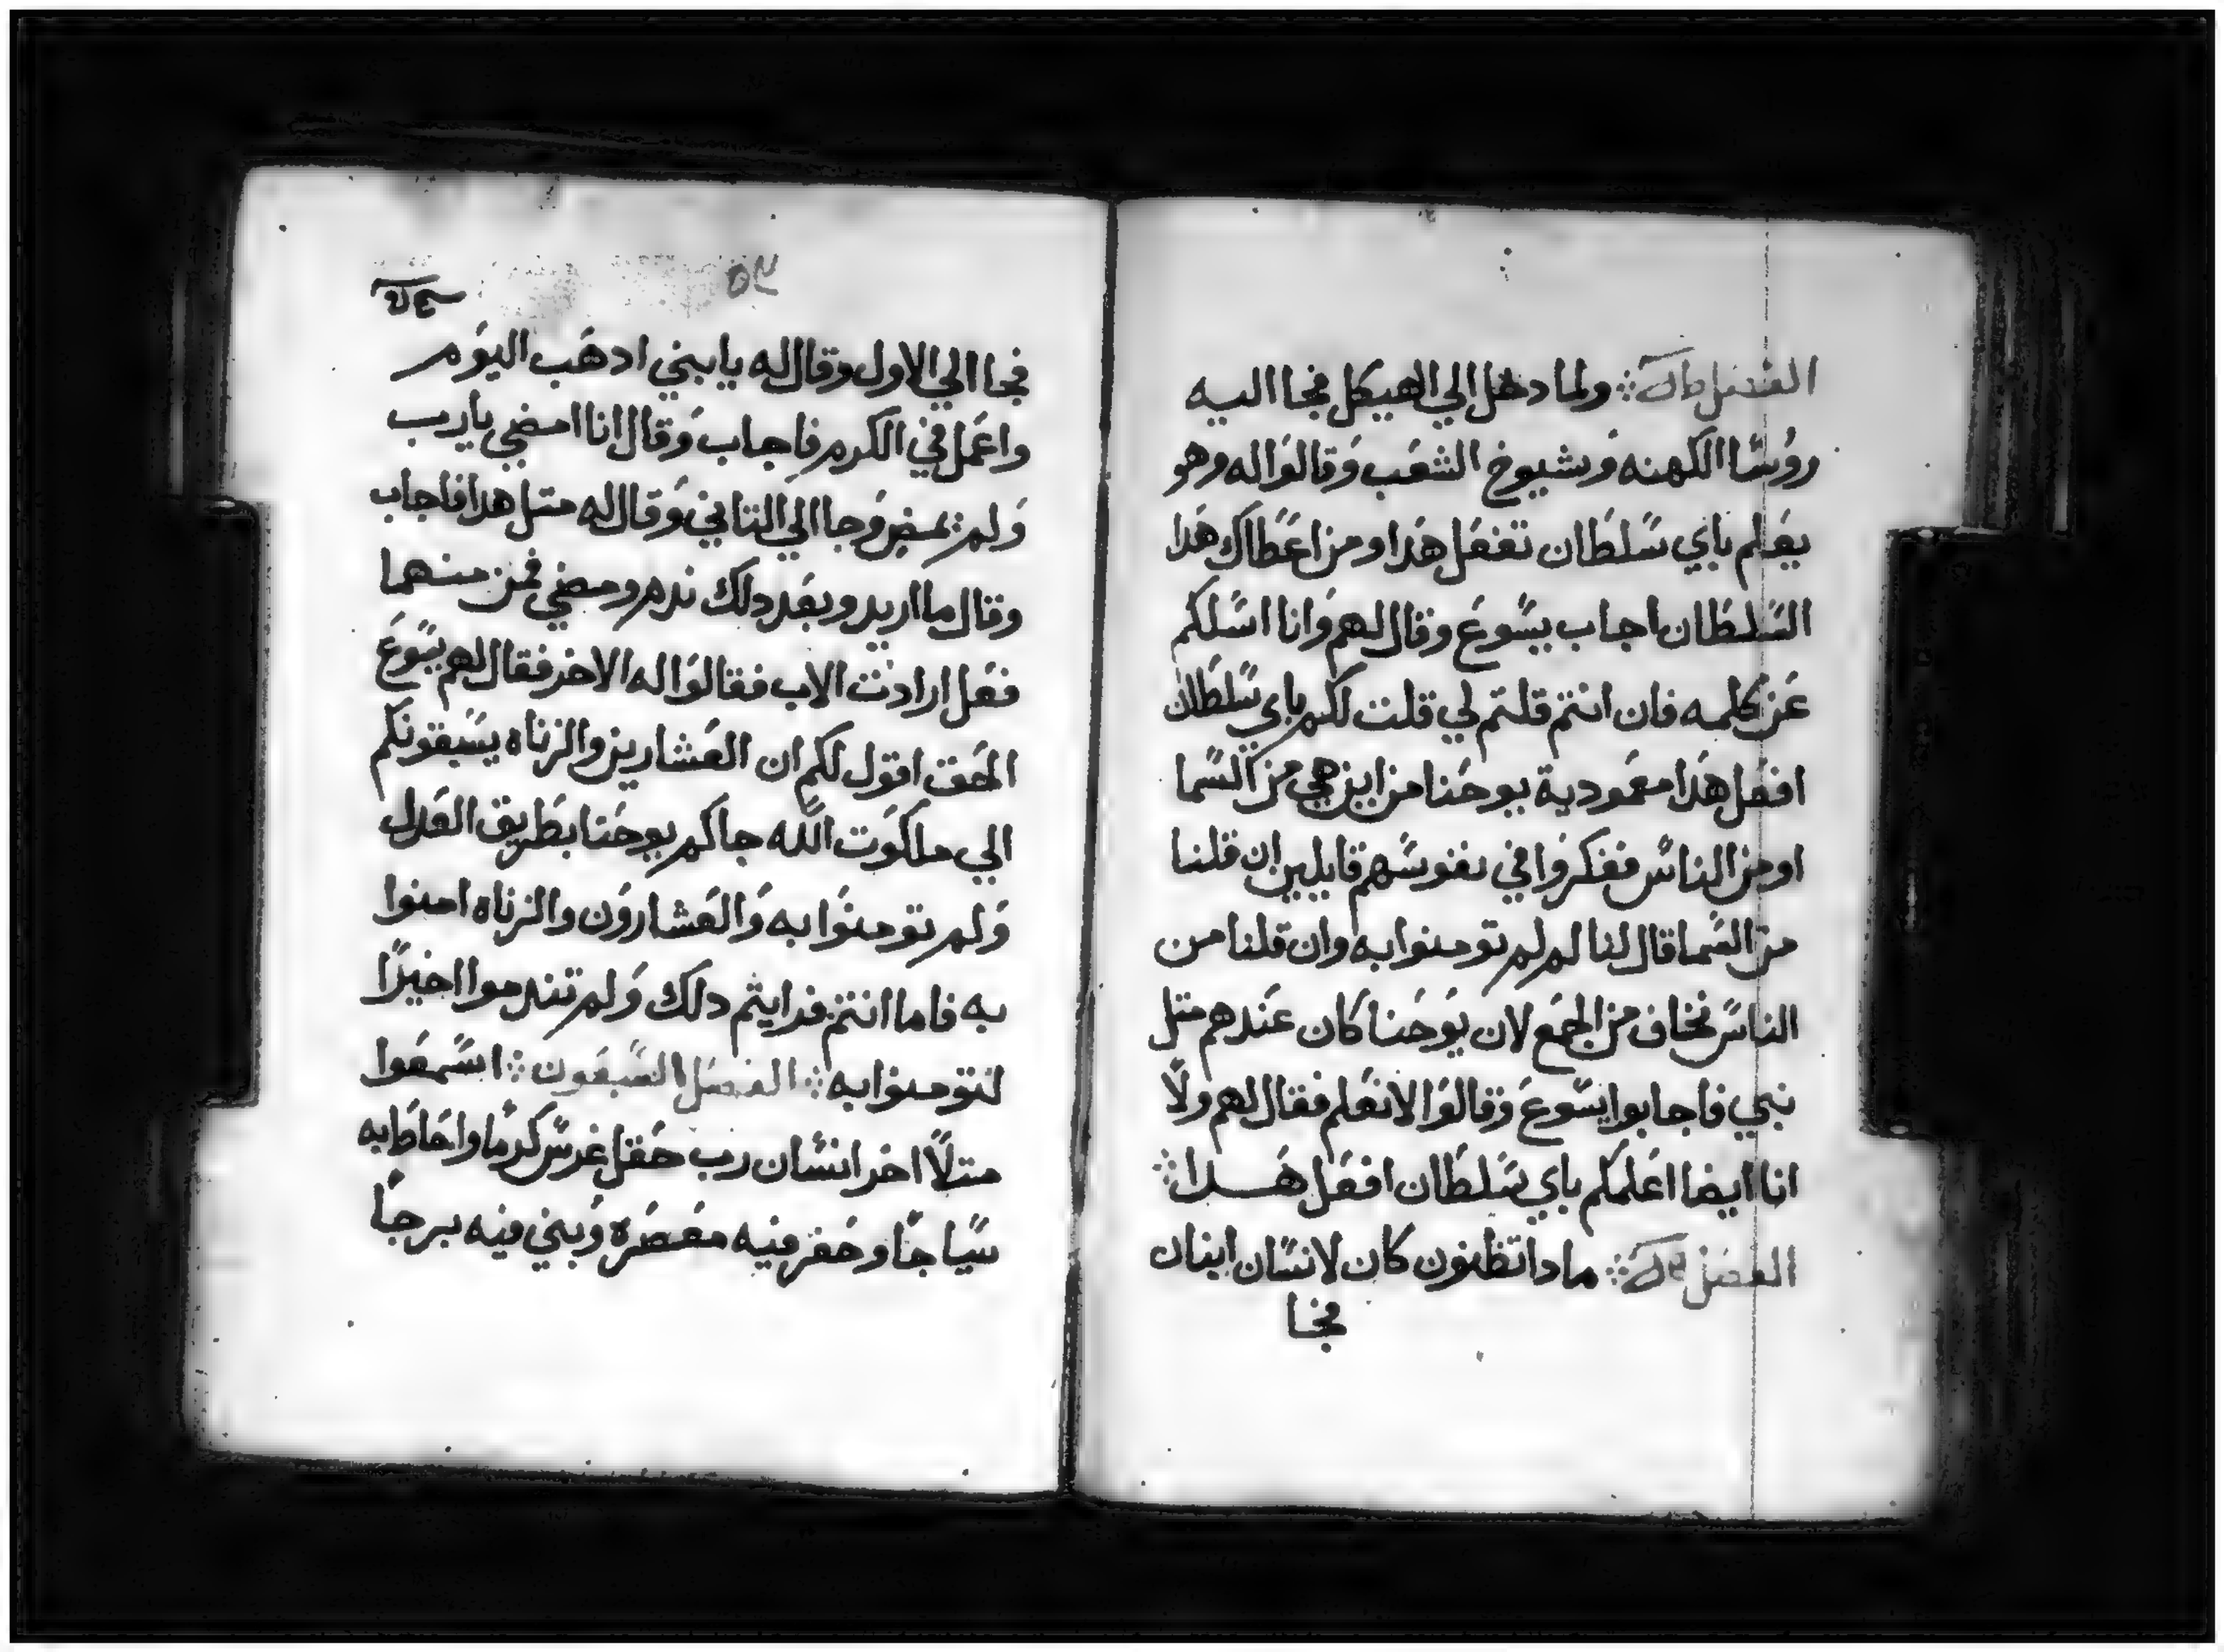 الفصل ۞ ولما دخل الي الهيكل فجا اليه
روُسا الكهنه وَشيوخ الشعَب وَقالوَا له وهو
يعَلم باي سَلطَان تفعَل هَدا ومن اعَطَاك هَدا
السَلطَان اجاب يسَوعَ وقال لهم وَانا اسَلكم
عَن كلمه فان انتم قلتم لي قلت لكم باي سَلطَان
افعَل هَدا معَمَودية يوحَنا من اين هي من السَما
او من الناسَ ففكروَا في نفوسَهم قايلين ان قلنا
من السَما قال لنا لم لم تومنوا به وان قلنا من
الناسَ نخاف من الجمَع لان يَوحَنا كان عَندهم متل
نبي فاجابوا يسَوعَ وَقالوَا لا نعَلم فقال لهم ولَا
انا ايضا اعَلمكم باي سَلطَان افعَل هَدا ۞
الفصل ۞ مادا تظنون كان لانسَان ابنان
فجا
٥٤
فجا الي الاول وقال له يا بني ادهَب اليوَم
واعَمَل في الكرم فاجاب وَقال انا امضي يارب
وَلم يمضي وَجا الي التاني وَقال له متل هدا فاجاب
وقال ما اريد وبعَد دلك ندم ومضي فمن منهما
فعَل ارادت الاب فقالوَا له الاخر فقال لهم يسَوَعَ
الحَق اقول لكم ان العَشارين والزناه يسَبقونكم
الي ملكوَت اللَه جاكم يوحَنا بطَريق العَدل
وَلم تومنوَا به وَالعَشاروَن والزناه امنوا
به فاما انتم فرايتم دلك وَلم تندموا اخيرًا
لتومنوا به ۞ الفصَل السَبعَون ۞ اسَمعَوا
متلًا اخر انسَان رب حَقل غرسَ كرمًا واحَاطَ به
سَياجًا وحَفر فيه معَصَرَه وَبني فيه برجًا